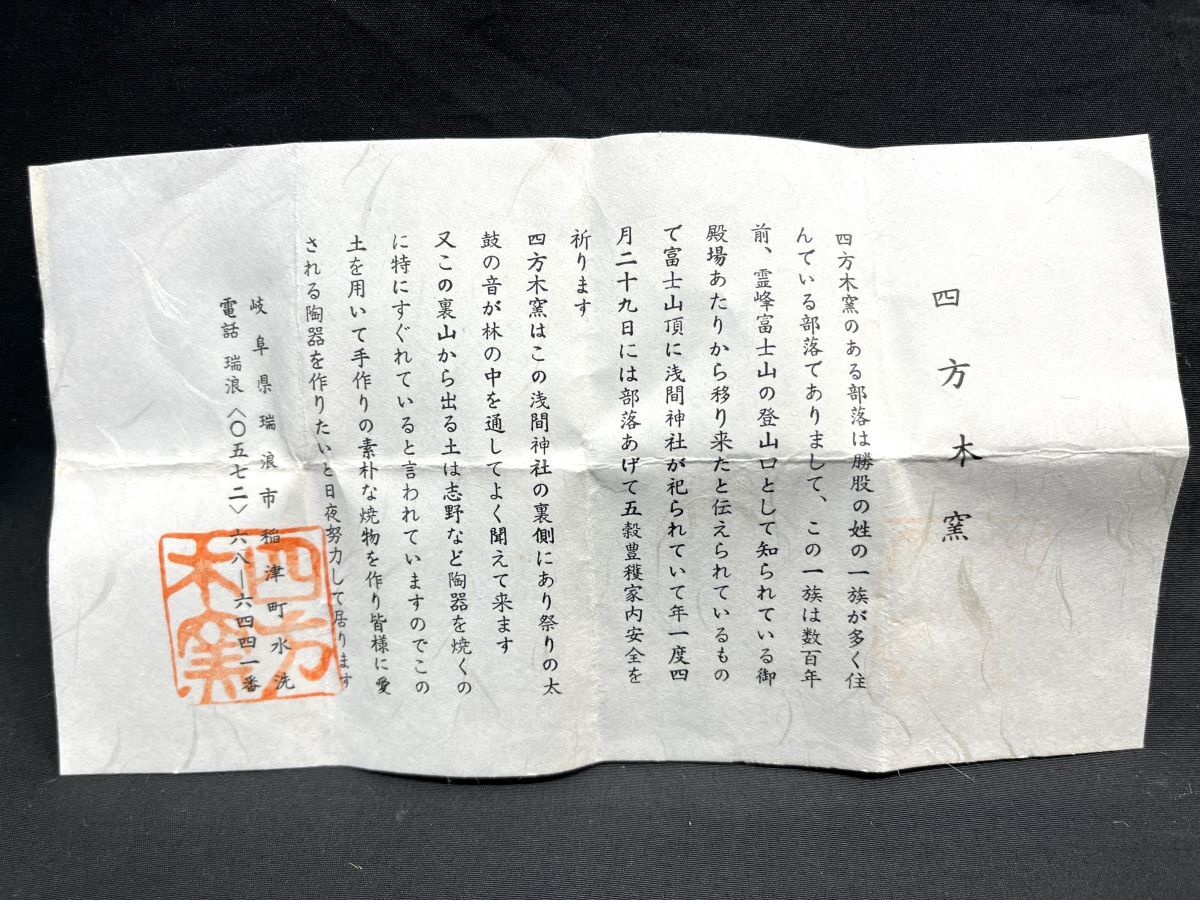 四方木窯
四方木窯のある部落は勝股の姓の一族が多く住
んでいる部落でありまして、この一族は数百年
前、霊峰富士山の登山口として知られている御
殿場あたりから移り来たと伝えられているもの
で富士山頂に浅間神社が祀られていて年一度四
月二十九日には部落あげて五穀豊穫家内安全を
祈ります
四方木窯はこの浅間神社の裏側にあり祭りの太
鼓の音が林の中を通してよく聞えて来ます
又この裏山から出る土は志野など陶器を焼くの
に特にすぐれていると言われていますのでこの
土を用いて手作りの素朴な焼物を作り皆様に愛
される陶器を作りたいと日夜努力して居ります
岐阜県瑞浪市稲津町水洗
電話 瑞浪〈〇五七二〉六八―六四四一番
四方
木窯